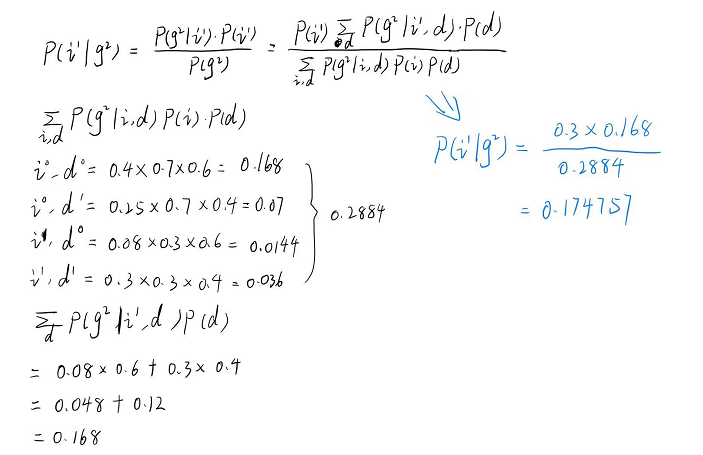 P(i'|g²) = P(g²|i')·P(i') / P(g²) = P(i') Σ_d P(g²|i', d)·P(d) / Σ_{i,d} P(g²|i,d) P(i) P(d)
Σ_{i,d} P(g²|i,d) P(i)·P(d)
i°, d° = 0.4 × 0.7 × 0.6 = 0.168
i°, d' = 0.25 × 0.7 × 0.4 = 0.07
i', d° = 0.08 × 0.3 × 0.6 = 0.0144
i', d' = 0.3 × 0.3 × 0.4 = 0.036
0.2884
Σ_d P(g²|i', d) P(d)
= 0.08 × 0.6 + 0.3 × 0.4
= 0.048 + 0.12
= 0.168
P(i'|g²) = 0.3 × 0.168 / 0.2884
= 0.174757